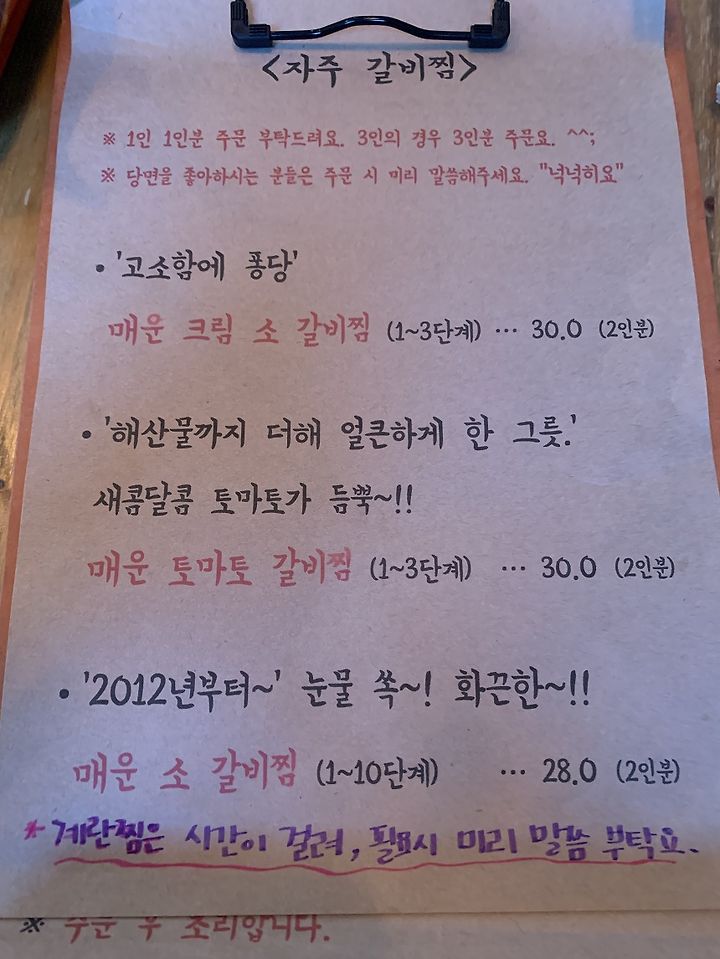 <자주 갈비찜>
※ 1인 1인분 주문 부탁드려요. 3인의 경우 3인분 주문요. ^^;
※ 당면을 좋아하시는 분들은 주문 시 미리 말씀해주세요. "넉넉히요"
• '고소함에 퐁당'
매운 크림 소 갈비찜 (1~3단계) ··· 30.0 (2인분)
• '해산물까지 더해 얼큰하게 한 그릇.'
새콤달콤 토마토가 듬뿍~!!
매운 토마토 갈비찜 (1~3단계) ··· 30.0 (2인분)
• '2012년부터~' 눈물 쏙~! 화끈한~!!
매운 소 갈비찜 (1~10단계) ··· 28.0 (2인분)
* 계란찜은 시간이 걸려, 필요시 미리 말씀 부탁요.
※ 주문 후 조리입니다.